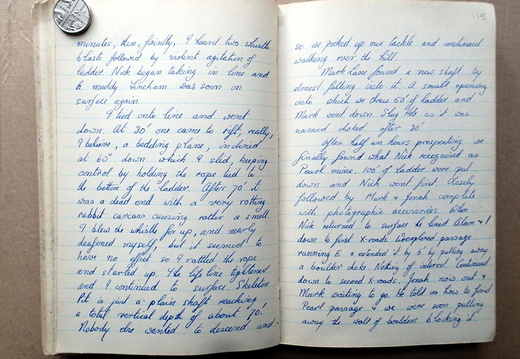 minutes, then, faintly, I heard two whistle
blasts followed by violent agitation of
ladder. Nick began taking in line and
a muddy Lincham was soon on
surface again.
I tied onto line and went
down. At 30' one came to rift, really,
I believe, a bedding plane, inclined
at 60° down which I slid, keeping
control by holding the rope tied to
the bottom of the ladder. After 70' it
was a dead end with a very rotting
rabbit carcass causing rather a smell.
I blew the whistle for up, and nearly
deafened myself, but it seemed to
have no effect so I rattled the rope
and started up. The life line tightened
and I continued to surface. Skeleton
Pot is just a plain shaft reaching
a total vertical depth of about 70'.
Nobody else wanted to descend and
so we picked up our tackle and continued
walking over the hill.
Mark Lane found a new shaft by
almost falling into it. A small opening
into which we threw 50' of ladder and
Mark went down. Slag Hole as it was
named choked after 30'.
After half an hours prospecting we
finally found what Nick recognised as
Pearl mine. 100' of ladder were put
down and Nick went first closely
followed by Mark + Jonah complete
with photographic accessories. When
Nick returned to surface he lined Alan + I
down to first X-roads. Unexplored passage
running E + extended it by 6' by pulling away
a boulder choke. Nothing of interest. Continued
down to second X-roads. Jonah now out +
Mark waiting to go. He told us how to find
Pearl passage + we were soon pulling
away the wall of boulders blocking it.